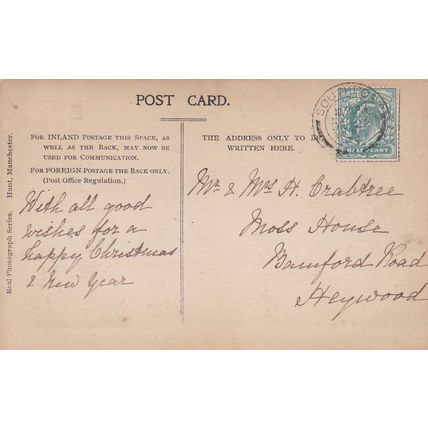 POST CARD.
FOR INLAND POSTAGE THIS SPACE, AS
WELL AS THE BACK, MAY NOW BE
USED FOR COMMUNICATION.
FOR FOREIGN POSTAGE THE BACK ONLY.
(Post Office Regulation.)
THE ADDRESS ONLY TO
WRITTEN HERE.
Real Photograph Series. Hunt, Manchester.
With all good
wishes for a
happy Christmas
& New Year
Mr & Mrs H. Crabtree
Moss House
Bamford Road
Heywood
SOUTHPORT
HALFPENNY